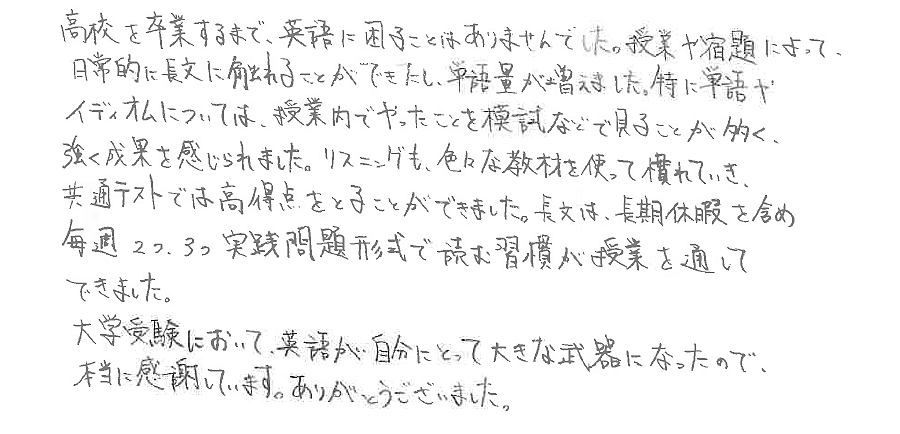 高校を卒業するまで、英語に困ることはありませんでした。授業や宿題によって、
日常的に長文に触れることができたし、単語量が増えました。特に単語や
イディオムについては、授業内でやったことを模試などで見ることが多く、
強く成果を感じられました。リスニングも、色々な教材を使って慣れていき、
共通テストでは高得点をとることができました。長文は、長期休暇を含め
毎週2つ、3つ実践問題形式で読む習慣が授業を通して
できました。
大学受験において、英語が自分にとって大きな武器になったので、
本当に感謝しています。ありがとうございました。